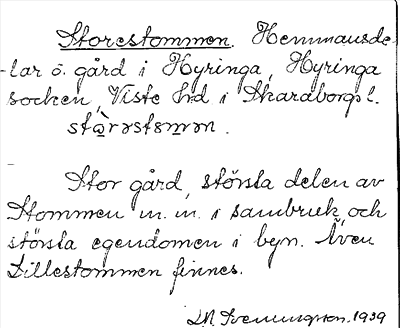 Storestommen. Hemmansde-
lar o. gård i Hyringa, Hyringa
socken, Viste hrd i Skaraborgs l.
Stor gård, största delen av
Stommen m.m. i sambruk, och
största egendomen i byn. Även
Lillestommen finnes.
1939